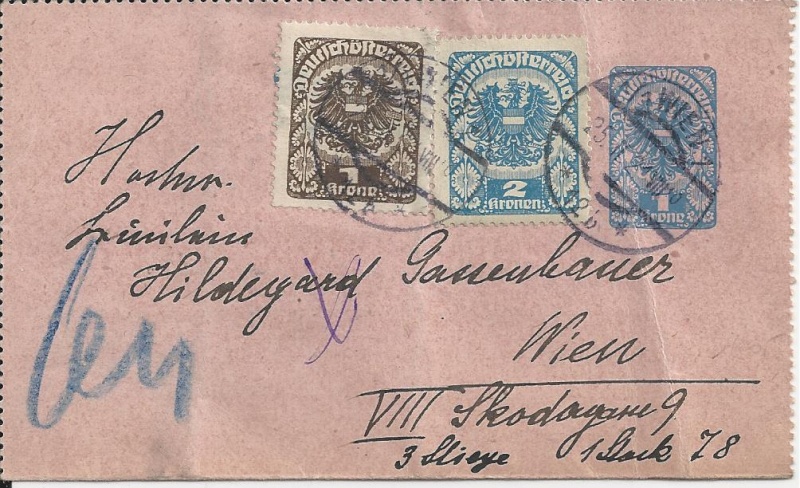 Deutschösterreich
1
Krone
Deutschösterreich
2
Kronen
Deutschösterreich
1
Krone
WIEN 1
Fräulein
Hildegard Gassenbauer
Wien
VIII Skodagasse 9
3 Stiege 1 Stock T 8